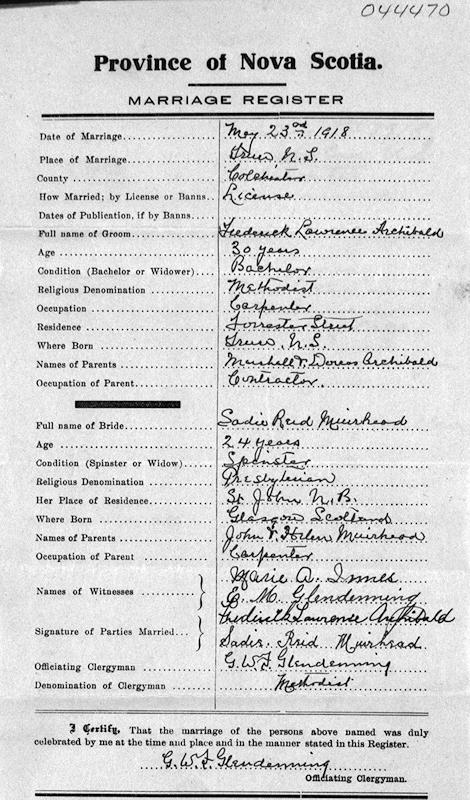 044470
Province of Nova Scotia.
MARRIAGE REGISTER
Date of Marriage.......... May 23rd 1918
Place of Marriage.......... Truro, N.S.
County .......... Colchester
How Married; by License or Banns.. License
Dates of Publication, if by Banns....
Full name of Groom.......... Frederick Lawrence Archibald
Age .......... 30 years
Condition (Bachelor or Widower).... Bachelor
Religious Denomination .......... Methodist
Occupation .......... Carpenter
Residence .......... Forrester Street
Where Born .......... Truro, N.S.
Names of Parents .......... Marshall & Dorcas Archibald
Occupation of Parent.......... Contractor
Full name of Bride.......... Sadie Reid Muirhead
Age .......... 24 years
Condition (Spinster or Widow).... Spinster
Religious Denomination .......... Presbyterian
Her Place of Residence.......... St. John N.B.
Where Born .......... Glasgow Scotland
Names of Parents .......... John & Helen Muirhead
Occupation of Parent .......... Carpenter
Names of Witnesses .......... } Marie A. Innes
E. M. Glendenning
Signature of Parties Married... } Frederick Lawrence Archibald
Sadie Reid Muirhead
Officiating Clergyman .......... G. W. F. Glendenning
Denomination of Clergyman .......... Methodist
I Certify, That the marriage of the persons above named was duly
celebrated by me at the time and place and in the manner stated in this Register.
G. W. F. Glendenning
Officiating Clergyman.